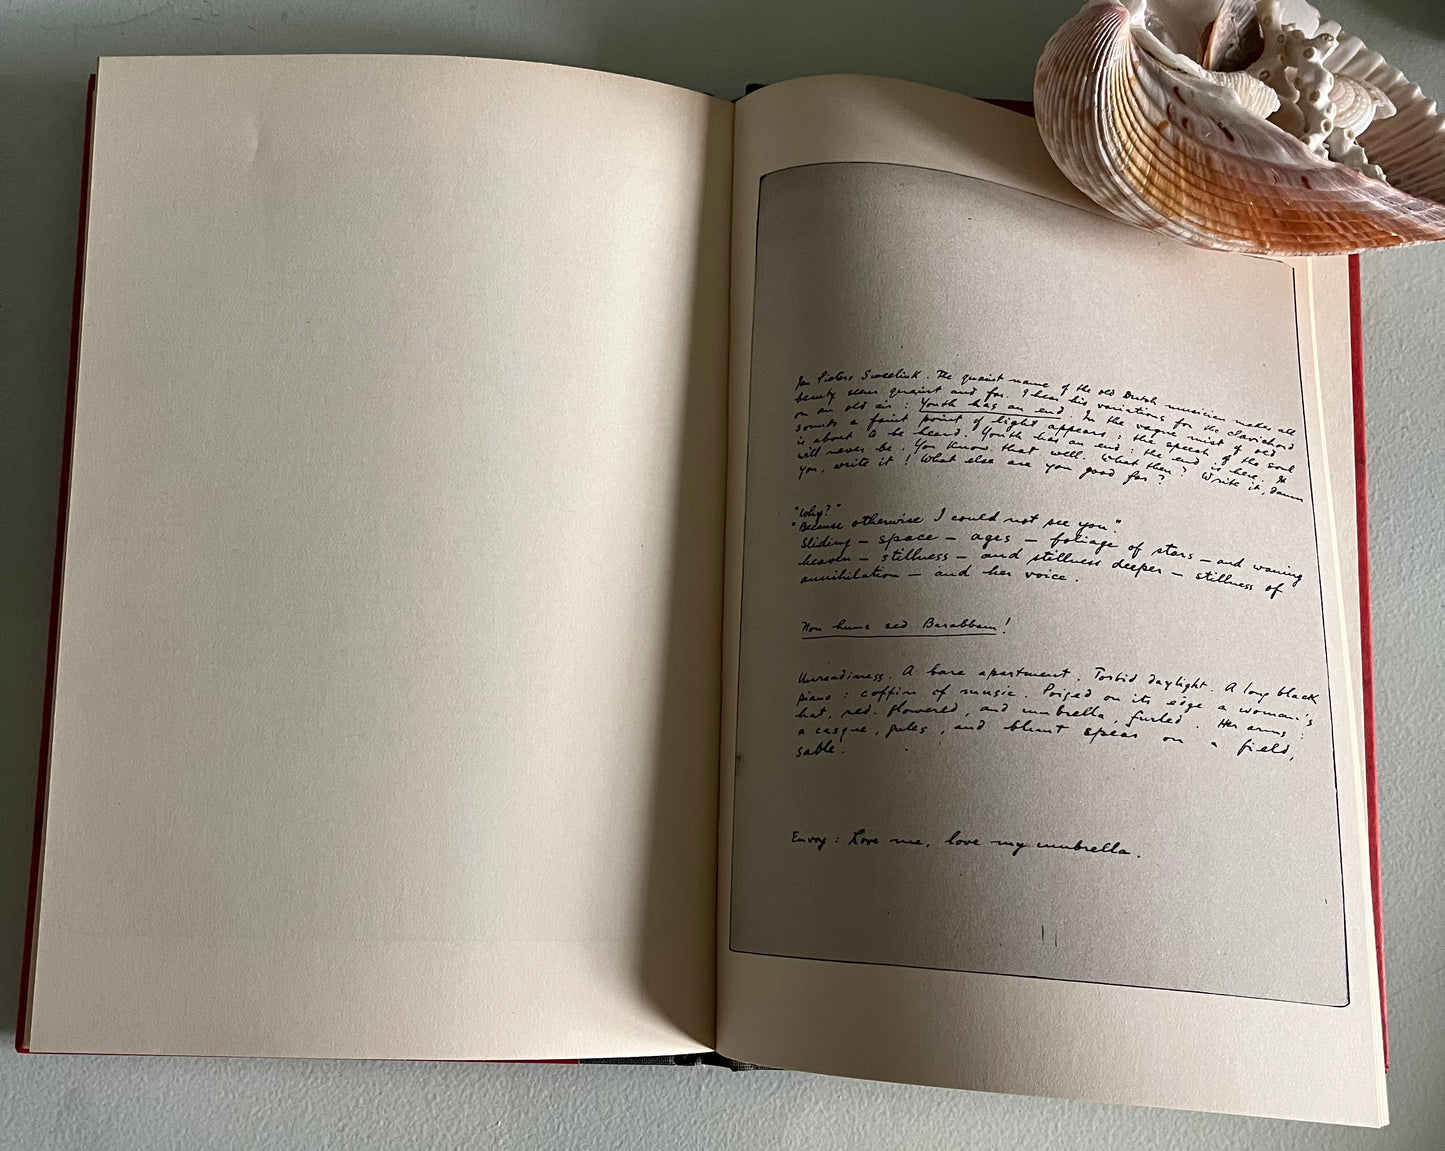 Jan Pieters Sweelink. The quaint name of the old Dutch musician makes all
beauty seem quaint and far. I hear his variations for the clavichord
on an old air: Youth has an end. In the vague mist of old
sounds a faint point of light appears: the speech of the soul
is about to be heard. Youth has an end: the end is here. It
will never be. You know that well. What then? Write it, damn
you, write it! What else are you good for?
"Why?"
"Because otherwise I could not see you."
Sliding — space — ages — foliage of stars — and waning
heaven — stillness — and stillness deeper — stillness of
annihilation — and her voice.
Non hunc sed Barabbam!
Unreadiness. A bare apartment. Torbid daylight. A long black
piano: coffin of music. Poised on its edge a woman's
hat, red-flowered, and umbrella, furled. Her arms:
a casque, gules, and blunt spear on a field,
sable.
Envoy: Love me, love my umbrella.